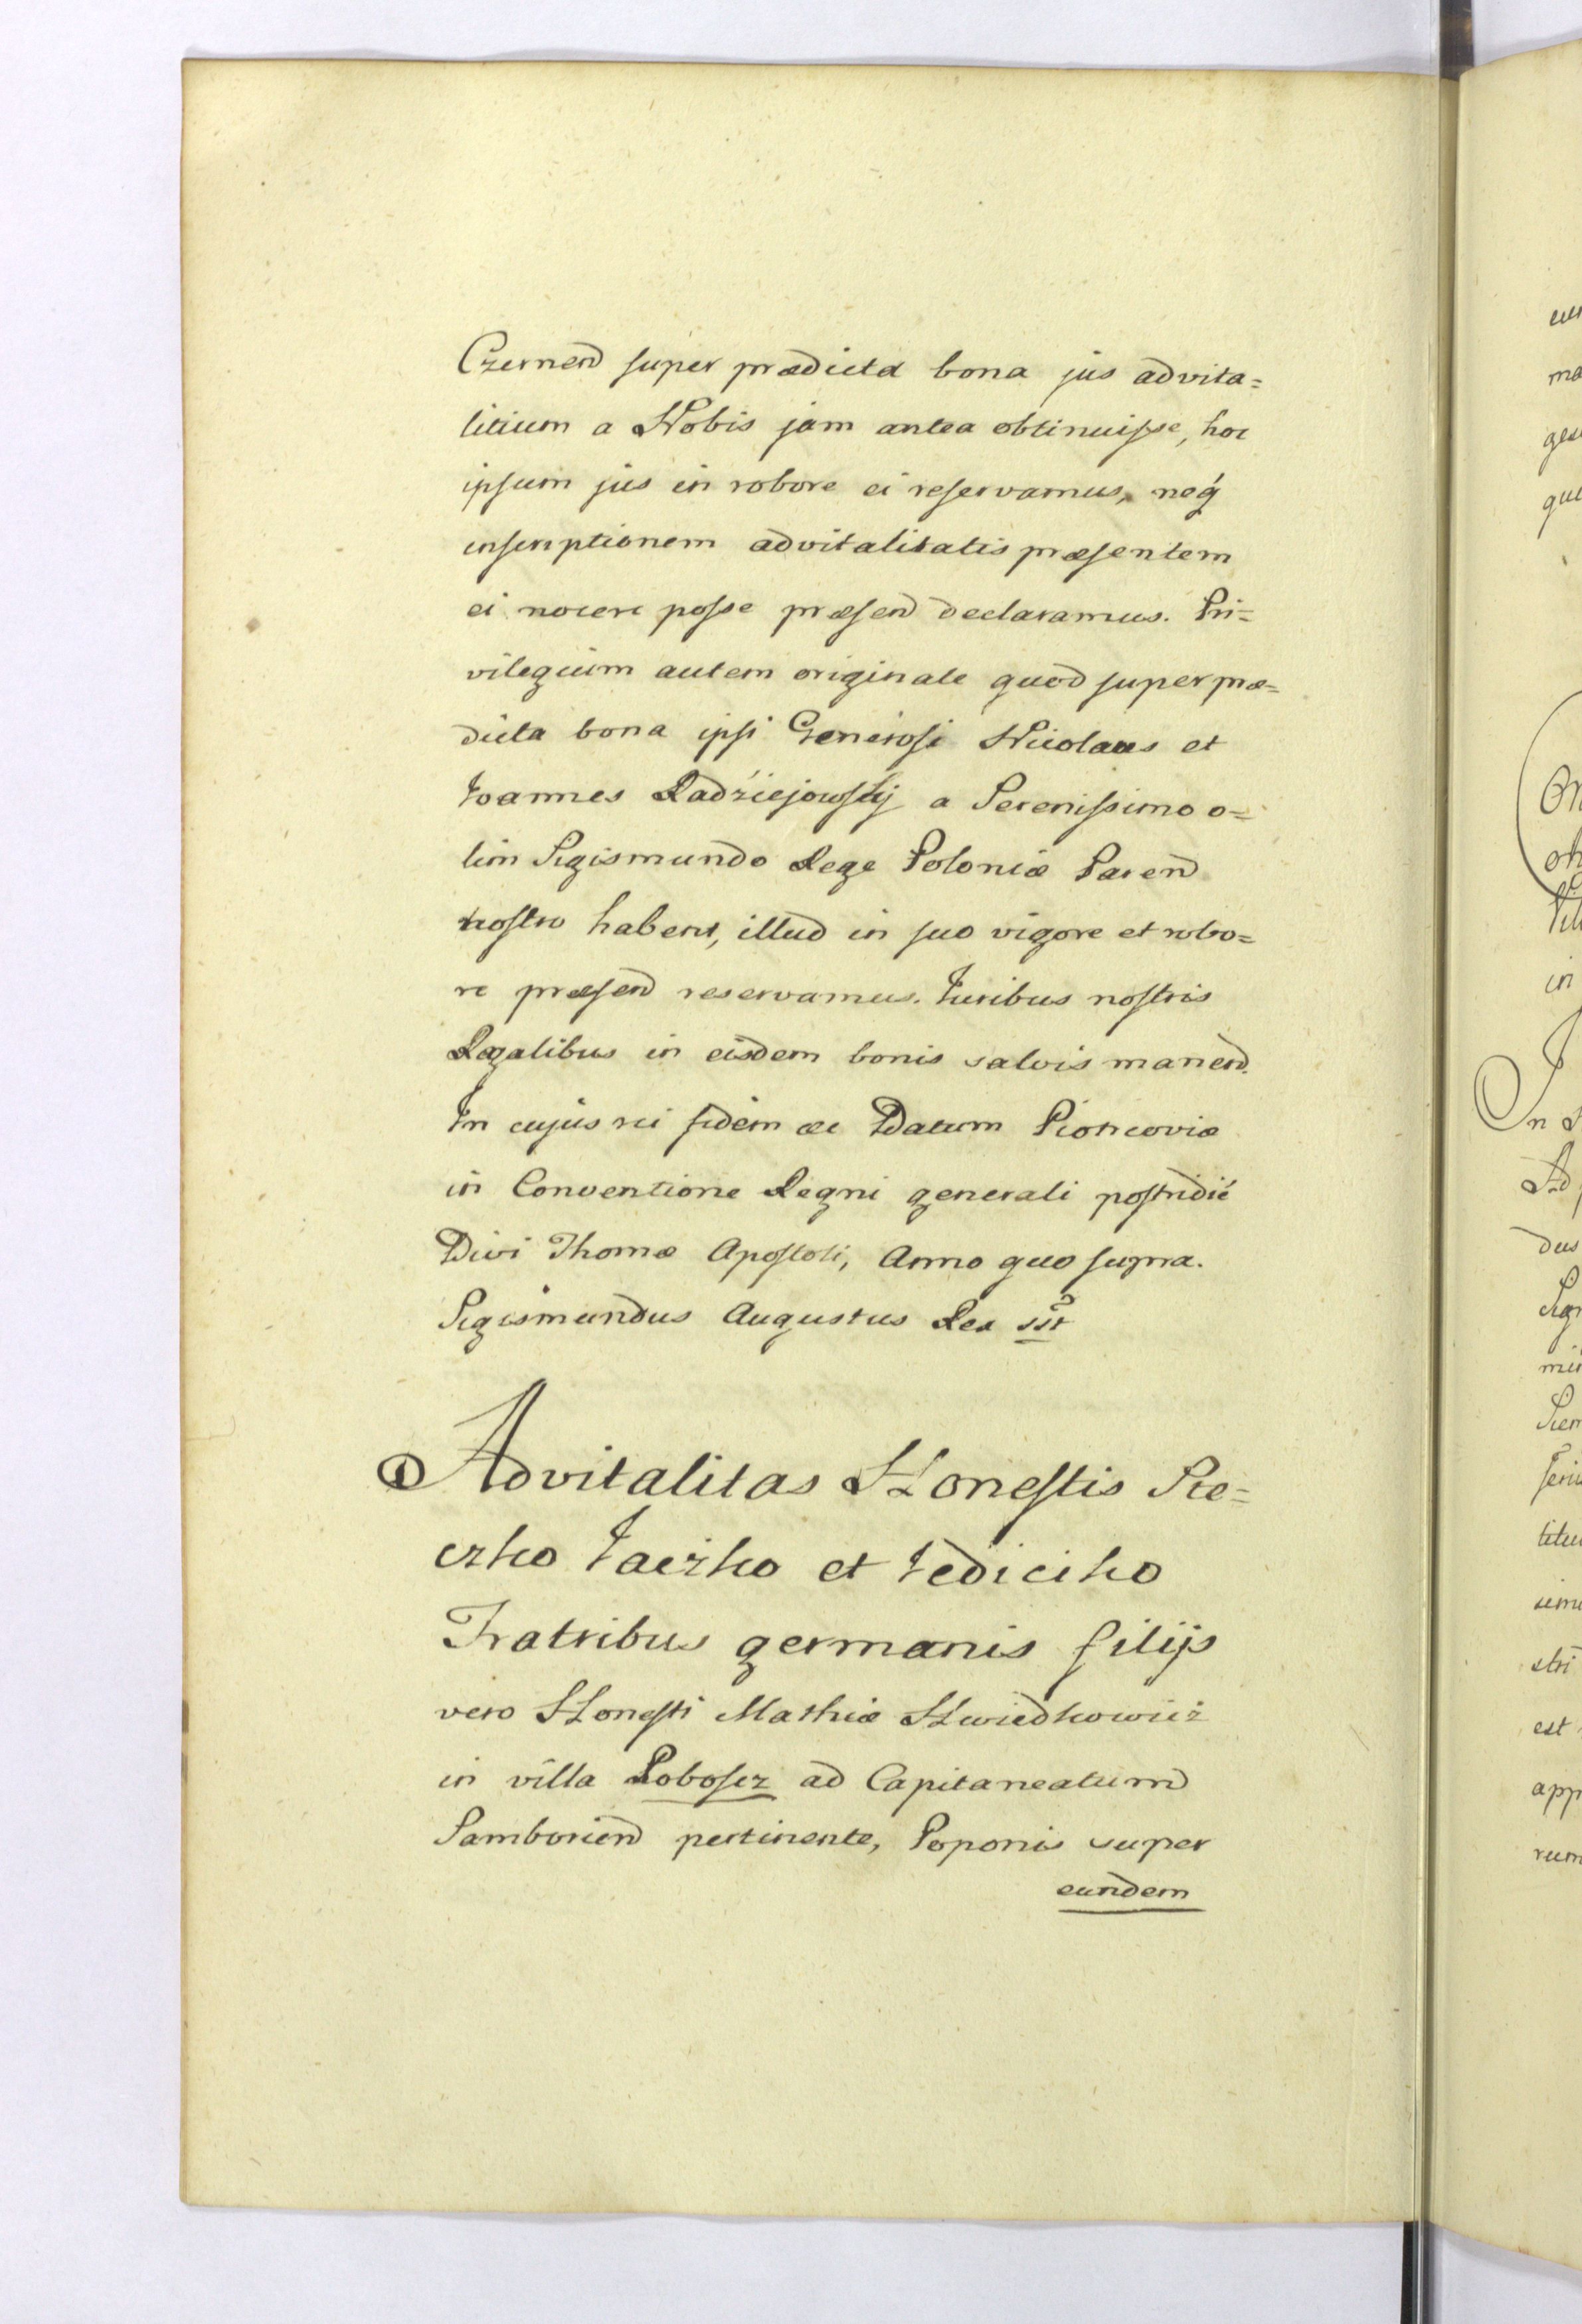 Czernen super prædicta bona jus advita=
litium a Nobis jam antea obtinuisse, hoc
ipsum jus in robore ei reservamus, neq́
inscriptionem advitalitatis præsentem
ei nocere posse præsen declaramus. Pri=
vilegium autem originale quod super præ=
dicta bona ipsi Generosi Nicolaus et
Joannes Radziejowskij a Serenissimo o=
lim Sigismundo Rege Poloniæ Paren
nostro habent, illud in suo vigore et robo=
re præsen reservamus. Juribus nostris
Regalibus in eisdem bonis salvis manen.
In cujus rei fidem &c Datum Piotrcoviæ
in Conventione Regni generali postridié
Divi Thomæ Apostoli, Anno quo supra.
Sigismundus Augustus Rex sst
Advitalitas Honestis Ste=
czko Jaczko et Fedicsko
Fratribus germanis filijs
vero Honesti Mathiæ Hwiedkowicz
in villa Lobosez ad Capitaneatum
Samborien pertinente, Poponis super
eundem
cu
ma
ges
que
in
In
Ad
dus
Sigi
mi
titu
simu
stri
est
app
rum